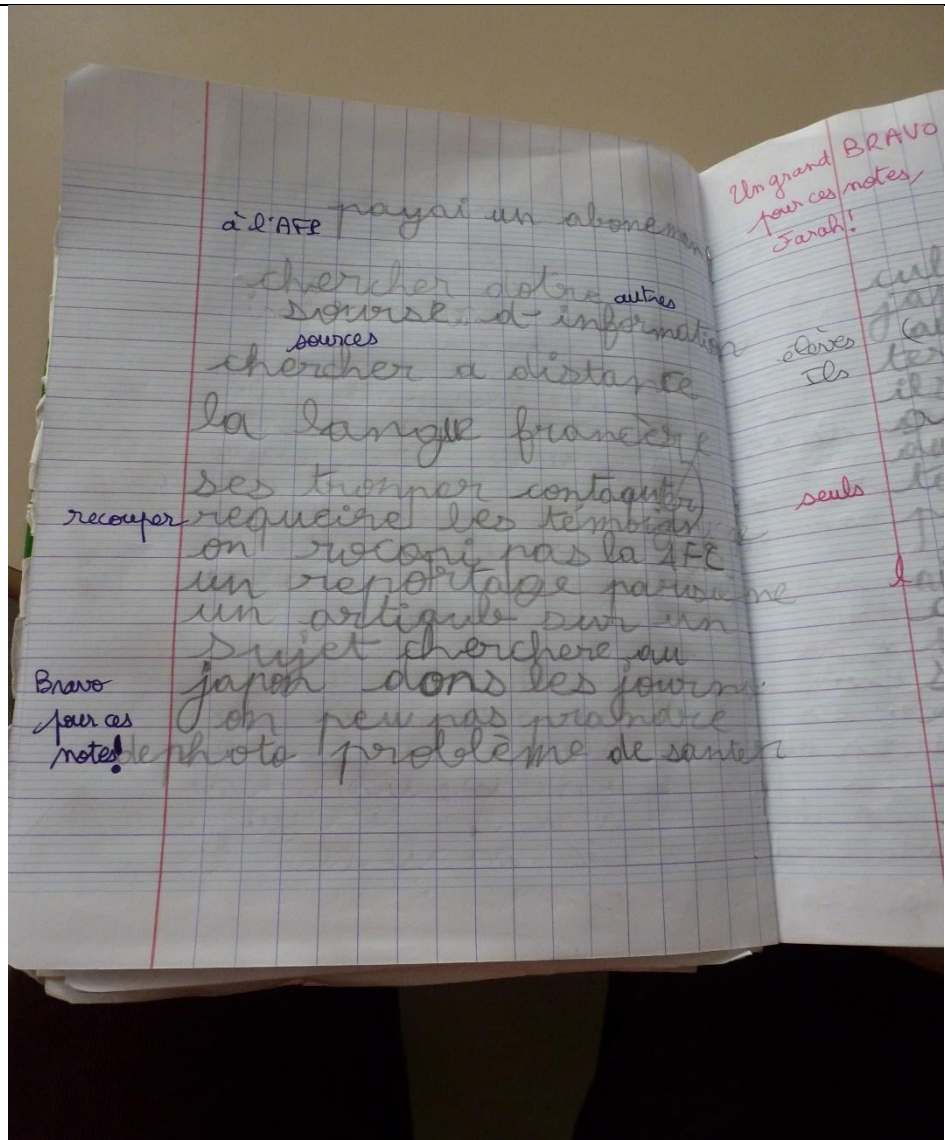 payai un abonemen
à l'AFP
chercher dotre autres
sourse d-information
sources
chercher a distance
la langue francèse
ses tromper contaquter
recouper requeire les témoias
on roconi pas la AFE
un reportage parou me
un artique sur un
sujet cherchere au
japon dons les journ
on peu pas prandre
de photo problème de santer
Bravo
pour ces
notes!
Un grand BRAVO
pour ces notes,
Sarah!
élèves
Ils
seuls